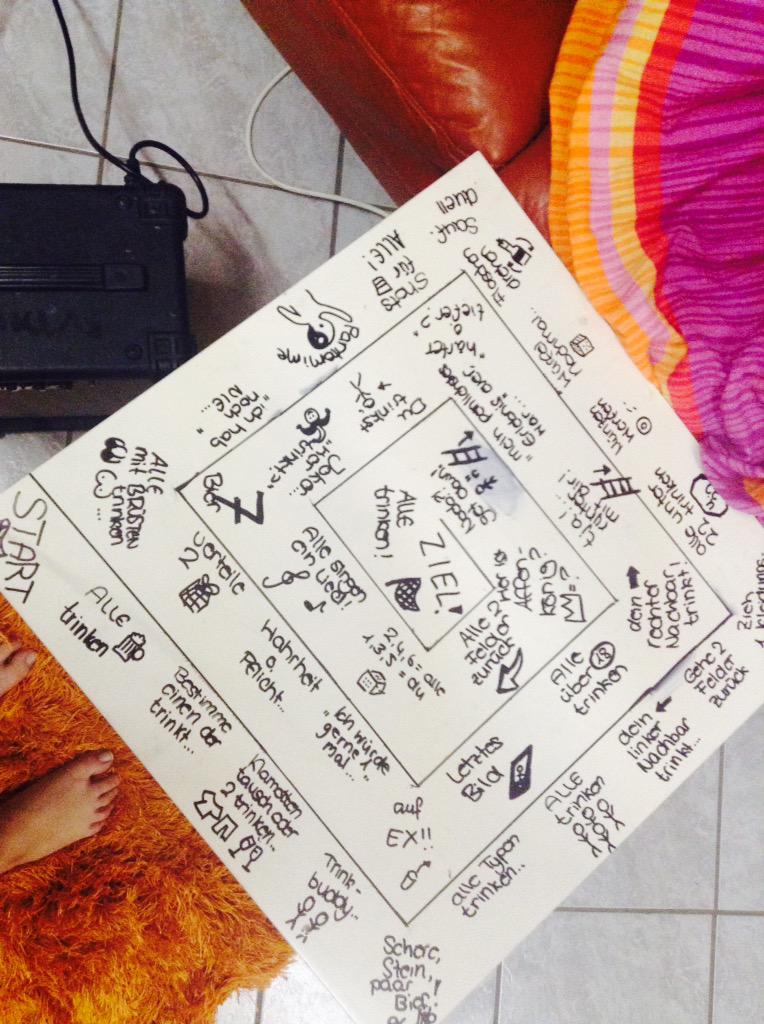 START
ALLE
trinken
Bestimme
einen der
trinkt...
Klamotten
tausch oder
2 trinken..
Trink-
buddy..
Schere,
Stein,
paar
Bier!
alle Typen
trinken..
ALLE
trinken
dein
linker
Nachbar
trinkt...
Gehe 2
Felder
zurück
Zieh
1
alle unter
22
trinken
Würfel
nochmal..
Sauf..
duell
Shots
für
ALLE!
Pantomime
"ich hab
noch
nie..."
ALLE
mit BRÜSTEN
trinken
...
verteile
2
Wahrheit
o.
Pflicht...
"Ich würde
gerne 1
mal...
auf
EX!!
Letztes
Bild
Alle
über 18
trinken
dein
rechter
Nachbar
trinkt!
"mein peinlichstes
erlebnis war,
war..."
"härter
o.
tiefer?"
Du
trinkst
Joker..
trinkt?"
7
Alle singen
ein Lied!
2,4,6 = alle
1,3,5 = du
Alle 2
Felder
zurück
Affen-
könig
ALLE
trinken!
ZIEL!